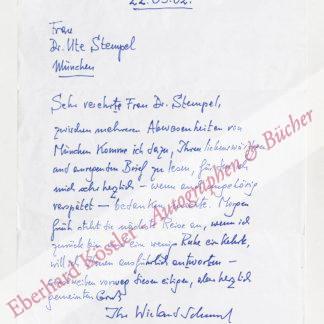 22.05.02.
Frau
Dr. Ute Stempel
München
Sehr verehrte Frau Dr. Stempel,
zwischen mehreren Abwesenheiten von
München komme ich dazu, Ihren liebenswürdigen
und anregenden Brief zu lesen, für den ich
mich sehr herzlich – wenn auch ungehörig
verspätet – bedanken möchte. Morgen
früh steht die nächste Reise an, wenn ich
zurück bin und ein wenig Ruhe einkehrt,
will ich Ihnen ausführlich antworten –
vorweg diesen eiligen, aber herzlich
gemeinten Gruß
Ihr Wieland Schmied
Eberhard Köstler - Autographen & Bücher